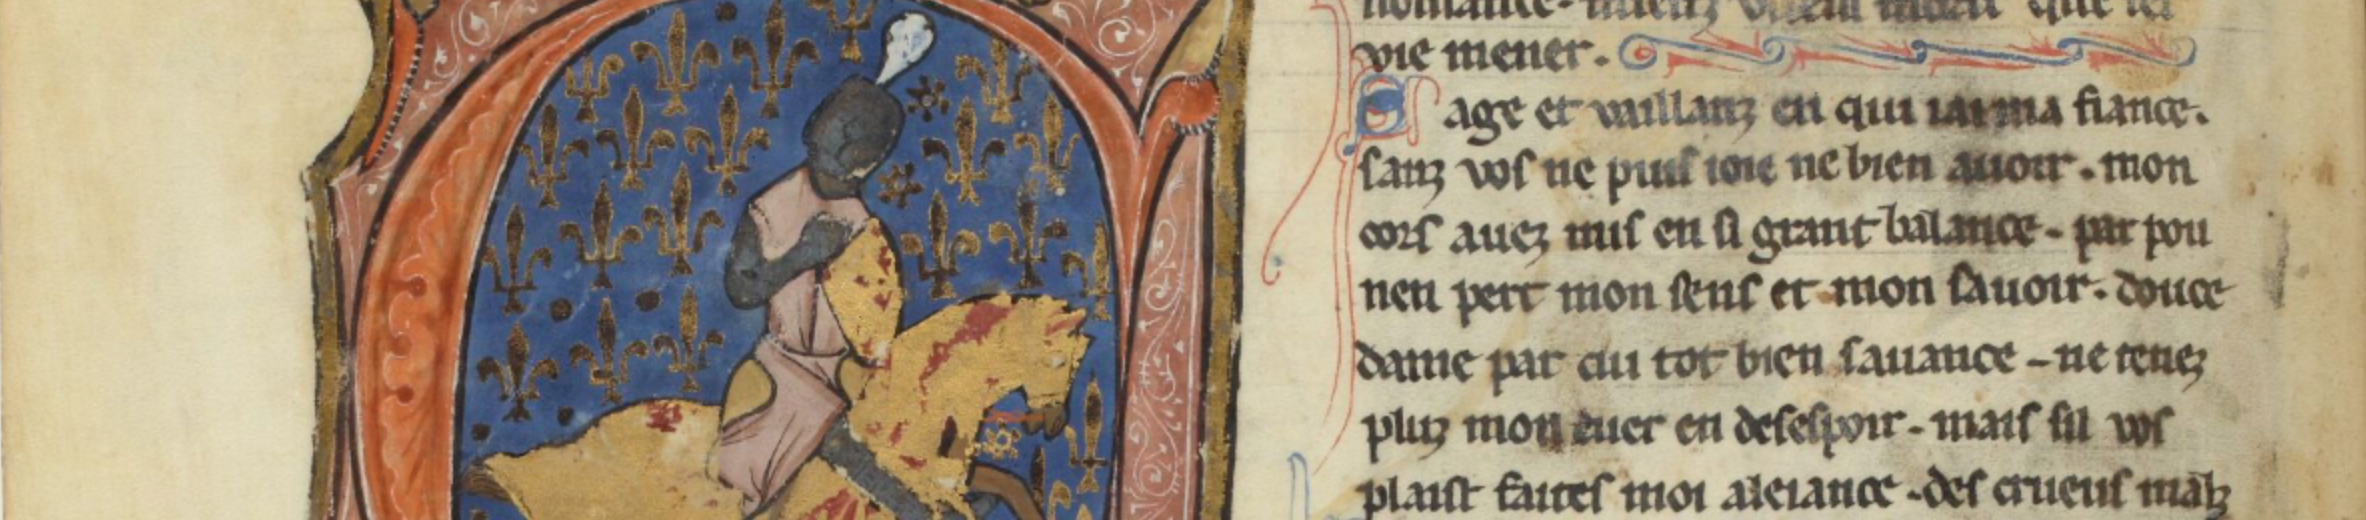 vie mener.
Sage et vaillanz en qui iai ma fiance.
sanz vos ne puis ioie ne bien auoir. mon
cors auez mis en si grant balance. par pou
nen pert mon sens et mon sauoir. douce
dame par cui tot bien sauance. ne tenez
pluz mon cuer en desespoir. mais sil vos
plaist faites moi aleiance. des crueus malz